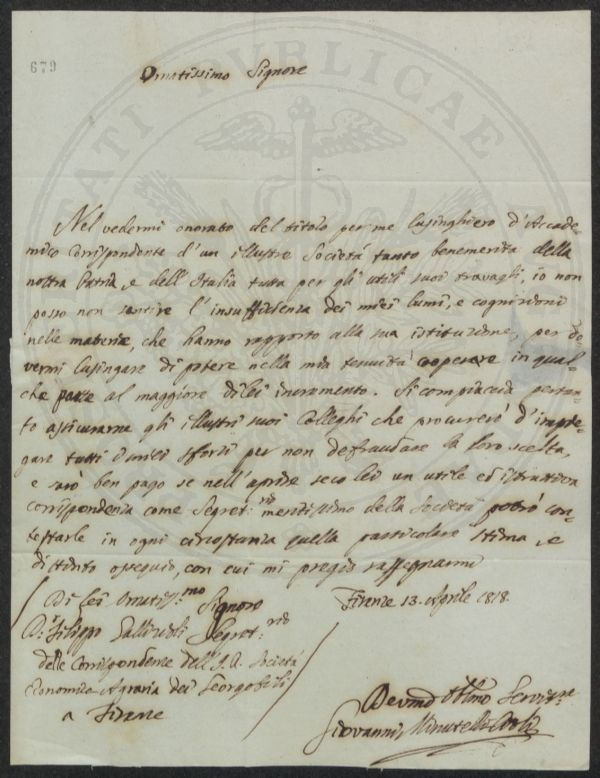 679
Ornatissimo Signore
Nel vedermi onorato del titolo per me lusinghiero d'Accade-
mico Corrispondente d'un illustre Società tanto benemerita della
nostra Patria, e dell'Italia tutta per gli utili suoi travagli, io non
posso non sentire l'insufficienza dei miei lumi, e cognizioni
nelle materie, che hanno rapporto alla sua istituzione, per do-
vermi lusingare di potere nella mia tenuità cooperare in qual-
che parte al maggiore di lei incremento. Si compiaccia pertan-
to assicurarne gli illustri suoi Colleghi che procurerò d'impie-
gare tutti i miei sforzi per non defraudare la loro scelta,
e sarò ben pago se nell'aprire seco lei un utile ed istruttiva
corrispondenza come Segret:rio meritissimo della Società potrò con-
testarle in ogni circostanza quella particolare stima, e
distinto ossequio, con cui mi pregio rassegnarmi
Di Lei Ornatiss:mo Signore
Firenze 13. Aprile 1818.
Dr Filippo Gallizioli Segret:rio
delle Corrispondenze dell'I. R. Società
Economico-Agraria dei Georgofili
a Firenze
Devmo Obbmo Servit:re
Giovanni Minutelli
PUBLICAE